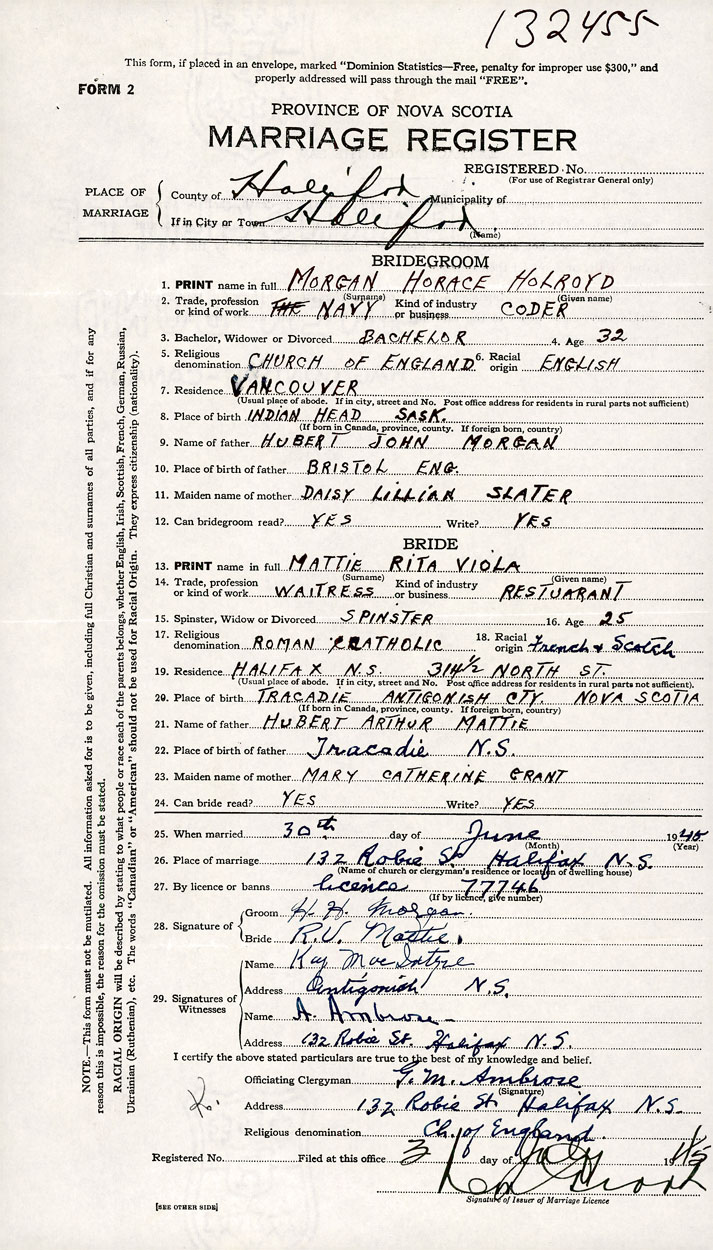 132455
This form, if placed in an envelope, marked "Dominion Statistics—Free, penalty for improper use $300," and
properly addressed will pass through the mail "FREE".
FORM 2
PROVINCE OF NOVA SCOTIA
MARRIAGE REGISTER
REGISTERED No.
(For use of Registrar General only)
PLACE OF MARRIAGE
County of Halifax Municipality of
If in City or Town Halifax
(Name)
BRIDEGROOM
1. PRINT name in full MORGAN HORACE HOLROYD
(Surname) (Given name)
2. Trade, profession or kind of work THE NAVY Kind of industry or business CODER
3. Bachelor, Widower or Divorced BACHELOR 4. Age 32
5. Religious denomination CHURCH OF ENGLAND 6. Racial origin ENGLISH
7. Residence VANCOUVER
(Usual place of abode. If in city, street and No. Post office address for residents in rural parts not sufficient)
8. Place of birth INDIAN HEAD SASK.
(If born in Canada, province, county. If foreign born, country)
9. Name of father HUBERT JOHN MORGAN
10. Place of birth of father BRISTOL ENG.
11. Maiden name of mother DAISY LILLIAN SLATER
12. Can bridegroom read? YES Write? YES
BRIDE
13. PRINT name in full MATTIE RITA VIOLA
(Surname) (Given name)
14. Trade, profession or kind of work WAITRESS Kind of industry or business RESTUARANT
15. Spinster, Widow or Divorced SPINSTER 16. Age 25
17. Religious denomination ROMAN CATHOLIC 18. Racial origin French & Scotch
19. Residence HALIFAX N.S. 314½ NORTH ST.
(Usual place of abode. If in city, street and No. Post office address for residents in rural parts not sufficient).
20. Place of birth TRACADIE ANTIGONISH CTY. NOVA SCOTIA
(If born in Canada, province, county. If foreign born, country)
21. Name of father HUBERT ARTHUR MATTIE
22. Place of birth of father Tracadie N.S.
23. Maiden name of mother MARY CATHERINE GRANT
24. Can bride read? YES Write? YES
25. When married 30th day of June 1945
(Month) (Year)
26. Place of marriage 132 Robie St Halifax N.S.
(Name of church or clergyman's residence or location of dwelling house)
27. By licence or banns licence 77746
(If by licence, give number)
28. Signature of
Groom H. H. Morgan.
Bride R.V. Mattie.
29. Signatures of Witnesses
Name Kay MacIntyre
Address Antigonish N.S.
Name A. Ambrose
Address 132 Robie St. Halifax N.S.
I certify the above stated particulars are true to the best of my knowledge and belief.
Officiating Clergyman G. M. Ambrose
(Signature)
Address 132 Robie St Halifax N.S.
Religious denomination Ch. of England.
Registered No. Filed at this office 3 day of July 1945
Signature of Issuer of Marriage Licence
[SEE OTHER SIDE]
NOTE.—This form must not be mutilated. All information asked for is to be given, including full Christian and surnames of all parties, and if for any
reason this is impossible, the reason for the omission must be stated.
RACIAL ORIGIN will be described by stating to what people or race each of the parents belongs, whether English, Irish, Scottish, French, German, Russian,
Ukrainian (Ruthenian), etc. The words "Canadian" or "American" should not be used for Racial Origin. They express citizenship (nationality).